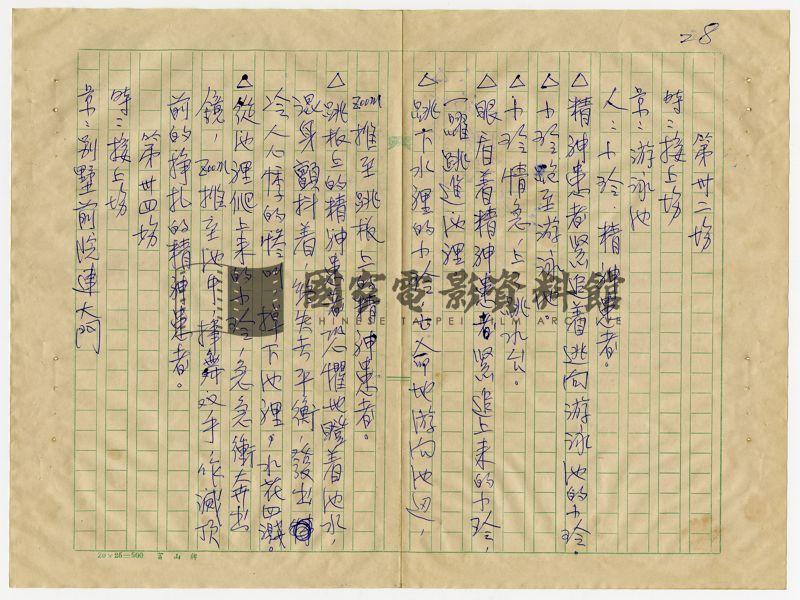 28
第卅三場
時：接上場
景：游泳池
人：小玲 精神患者。
△精神患者緊追着逃向游泳池的小玲。
△小玲跑至游泳池。
△小玲情急，上跳水台。
△眼看着精神患者緊追上來的小玲，
一躍跳進池裡
△跳下水裡的小玲，亡命地游向池邊，
ZOOM推至跳板上的精神患者。
△跳板上的精神患者恐懼地瞪着池水，
混身顫抖着，失去平衡，發出
冷人心悸的慘叫 掉下池裡，水花四濺。
△從池裡爬上來的小玲，急急衝奔出
鏡，ZOOM推至池中 揮舞双手，作滅頂
前的掙扎的精神患者。
第卅四場
時：接上場
景：別墅前院連大門
國家電影資料館
CHINESE TAIPEI FILM ARCHIVE
20×25=500 富山牌